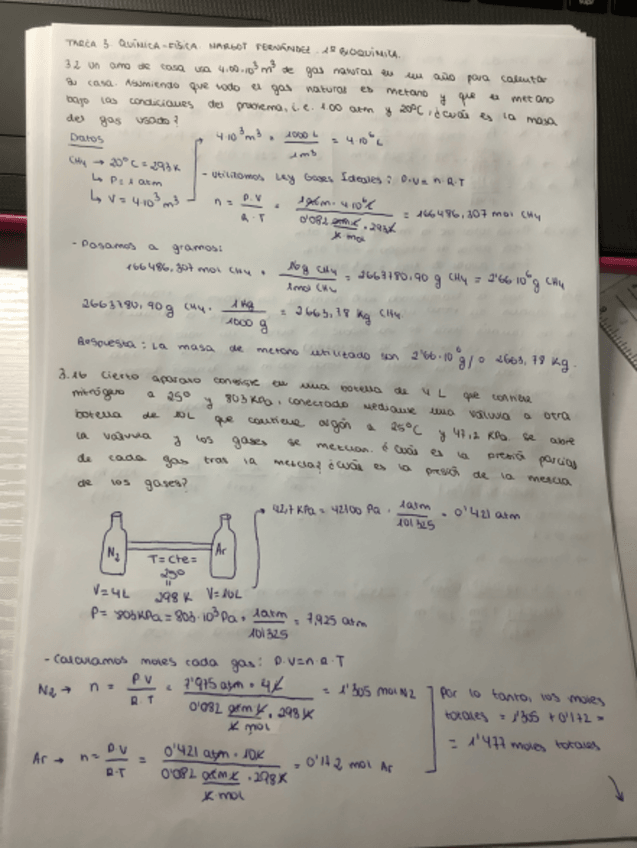 TAREA 3. QUÍMICA-FÍSICA. MARGOT FERNÁNDEZ. 1º BIOQUÍMICA.
3.2 Un amo de casa usa 4.00.10³ m³ de gas natural en un año para calentar
su casa. Asumiendo que todo el gas natural es metano y que el metano
bajo las condiciones del problema, i.e. 1.00 atm y 20ºC, ¿cuál es la masa
del gas usado?
Datos
4·10³ m³ · 1000 L / 1 m³ = 4·10⁶ L
CH₄ → 20ºC = 293 K
↳ P = 1 atm
↳ V = 4·10³ m³
- Utilizamos Ley Gases Ideales: P·V = n·R·T
n = P·V / R·T = 1 atm · 4·10⁶ L / 0'082 atm·L / K mol · 293 K = 166486,307 mol CH₄
- Pasamos a gramos:
166486,307 mol CH₄ · 16g CH₄ / 1 mol CH₄ = 2663780,90 g CH₄ = 2'66·10⁶ g CH₄
2663780,90 g CH₄ · 1 Kg / 1000 g = 2663,78 Kg CH₄
Respuesta: La masa de metano utilizado son 2'66·10⁶ g / o 2663,78 Kg.
3.16 Cierto aparato consiste en una botella de 4 L que contiene
nitrógeno a 25º y 803 KPa, conectado mediante una válvula a otra
botella de 10L que contiene argón a 25ºC y 47,2 KPa. Se abre
la válvula y los gases se mezclan. ¿Cuál es la presión parcial
de cada gas tras la mezcla? ¿Cuál es la presión de la mezcla
de los gases?
42,7 KPa = 42700 Pa · 1 atm / 101325 = 0'421 atm
N₂ Ar
T = Cte =
25º
"
V = 4L 298 K V = 10L
P = 803 KPa = 803·10³ Pa · 1 atm / 101325 = 7,925 atm
- Calculamos moles cada gas: P·V = n·R·T
N₂ → n = P V / R·T = 7'975 atm · 4 L / 0'082 atm L / K mol · 298 K = 1'305 mol N₂
Por lo tanto, los moles
totales = 1'305 + 0'172 =
= 1'477 moles totales
Ar → n = P V / R·T = 0'421 atm · 10 L / 0'082 atm L / K mol · 298 K = 0'172 mol Ar